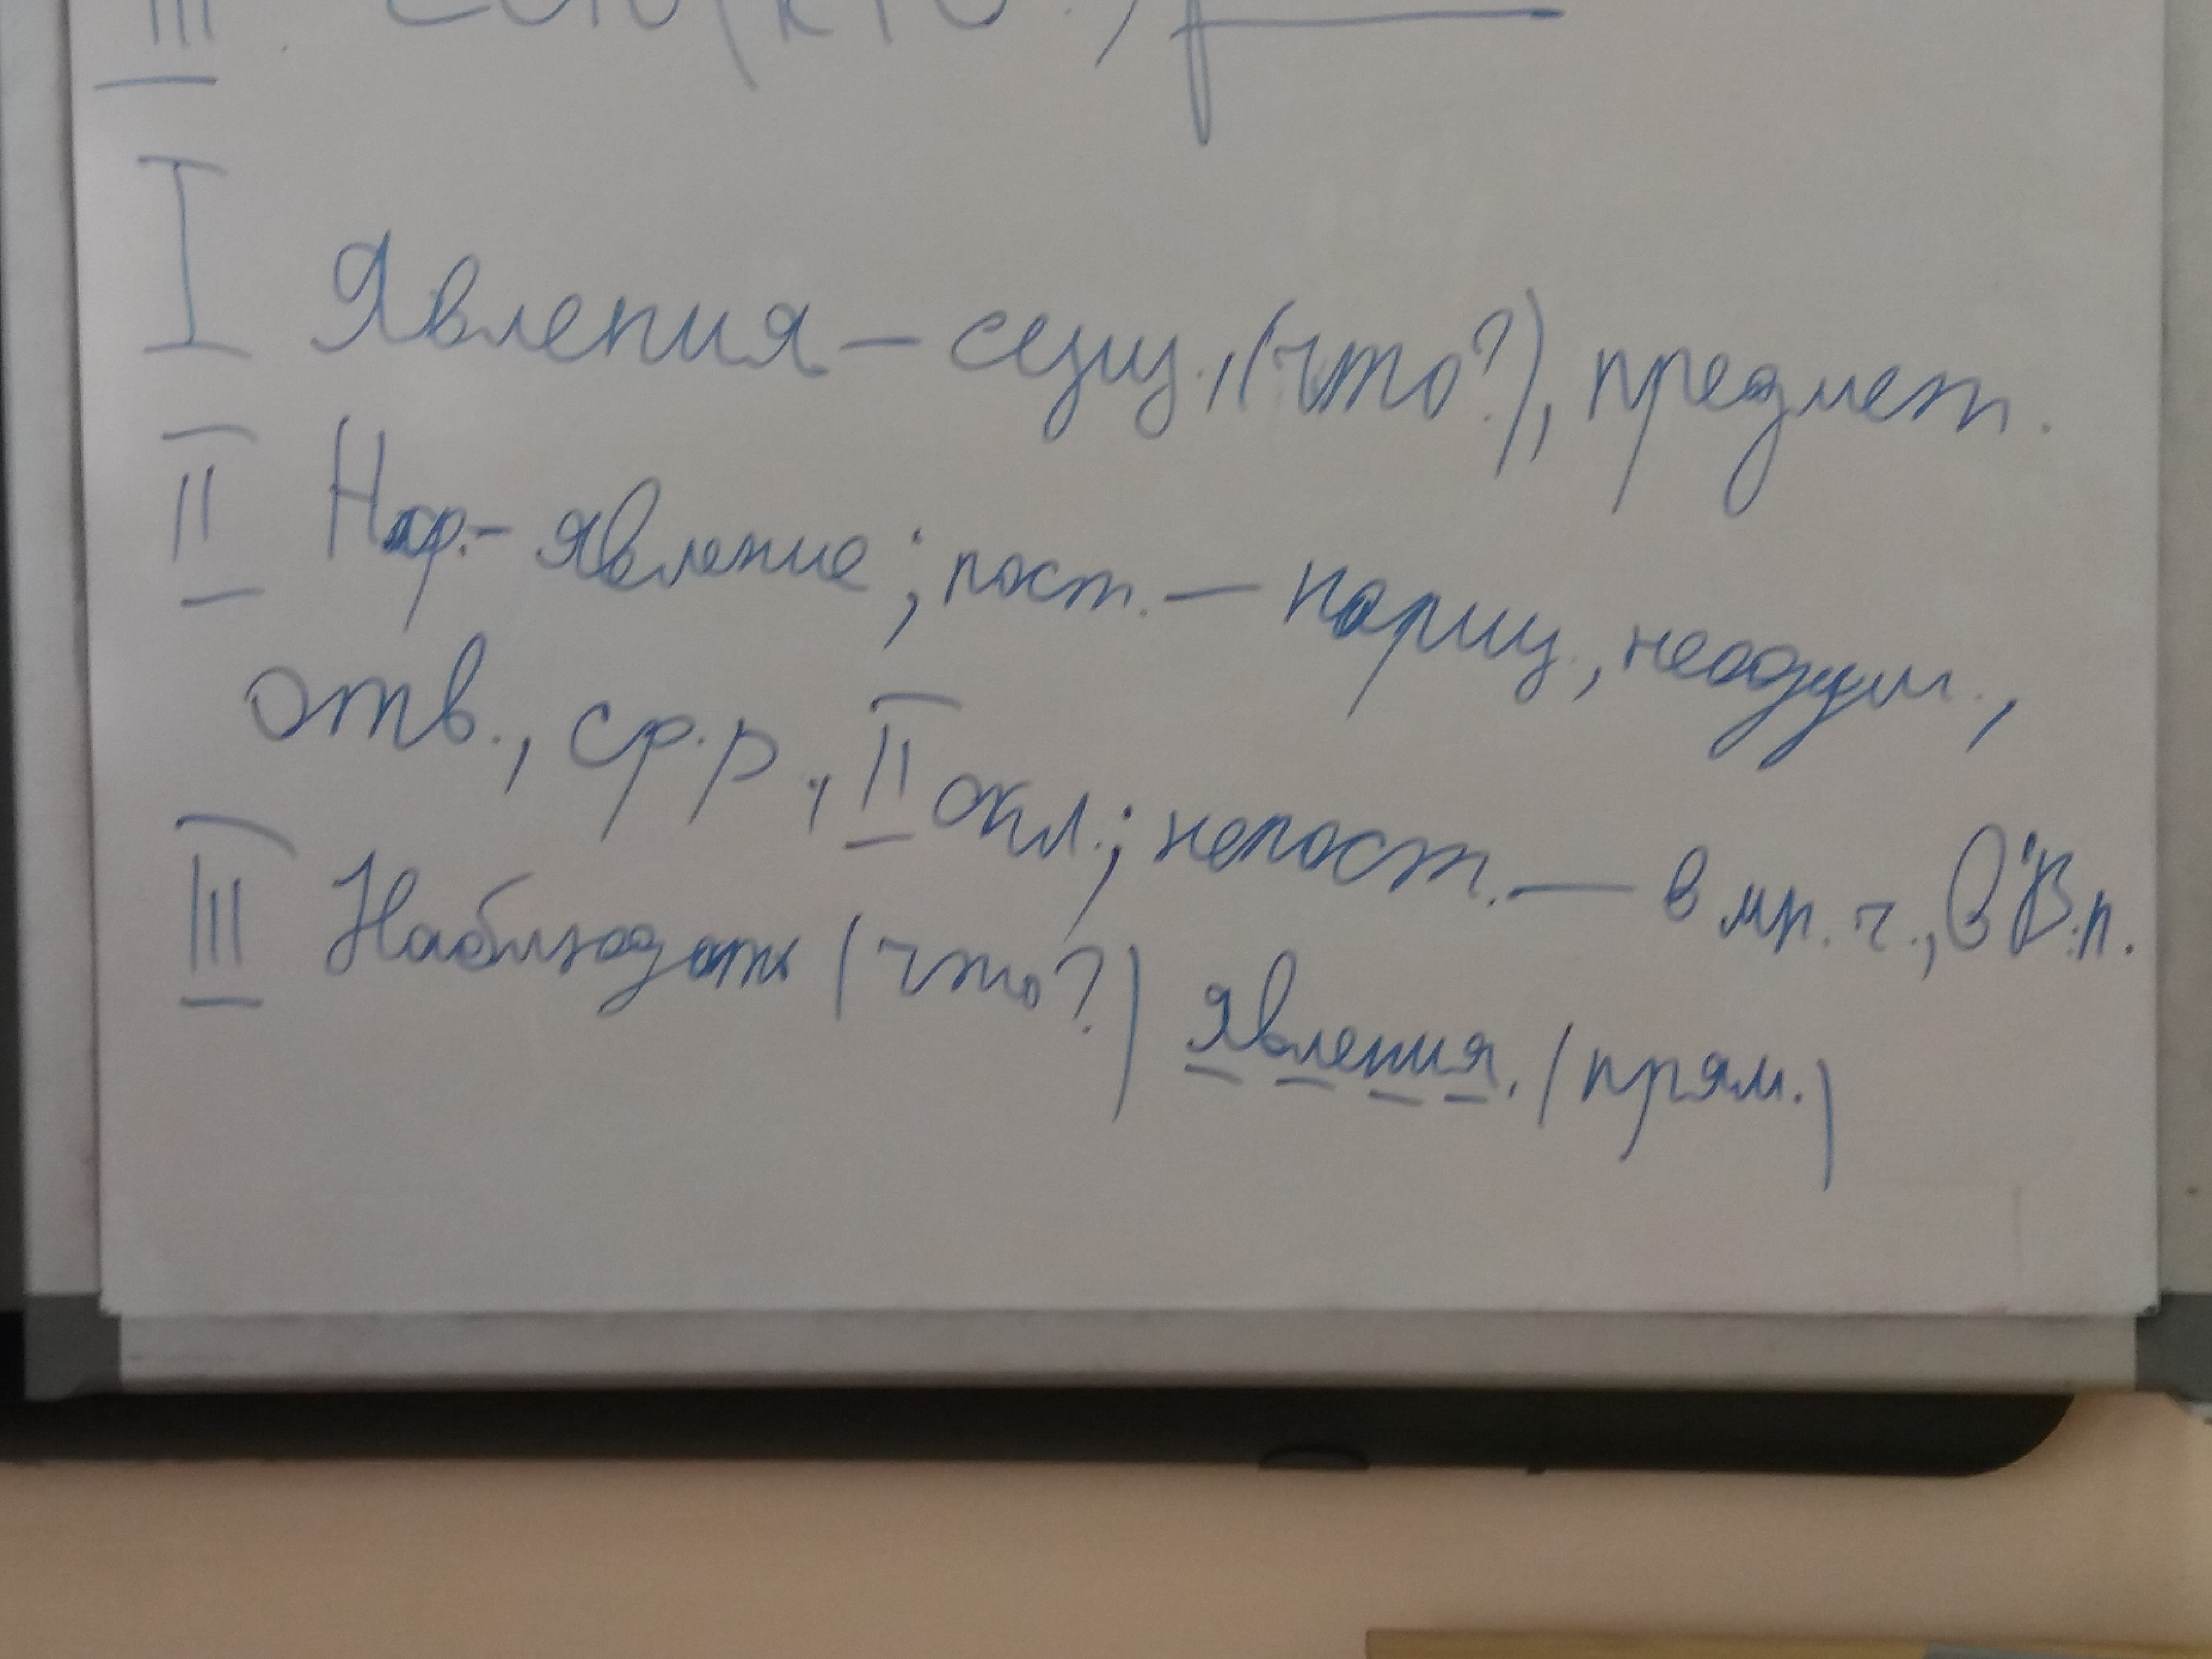 III
I Явления – сущ., (что?), предмет.
II Н.ф. – явление; пост. — нариц., неодуш.,
отв., ср.р., II скл.; непост. — в мн. ч., в В.п.
III Наблюдать (что?) явления. (прям.)